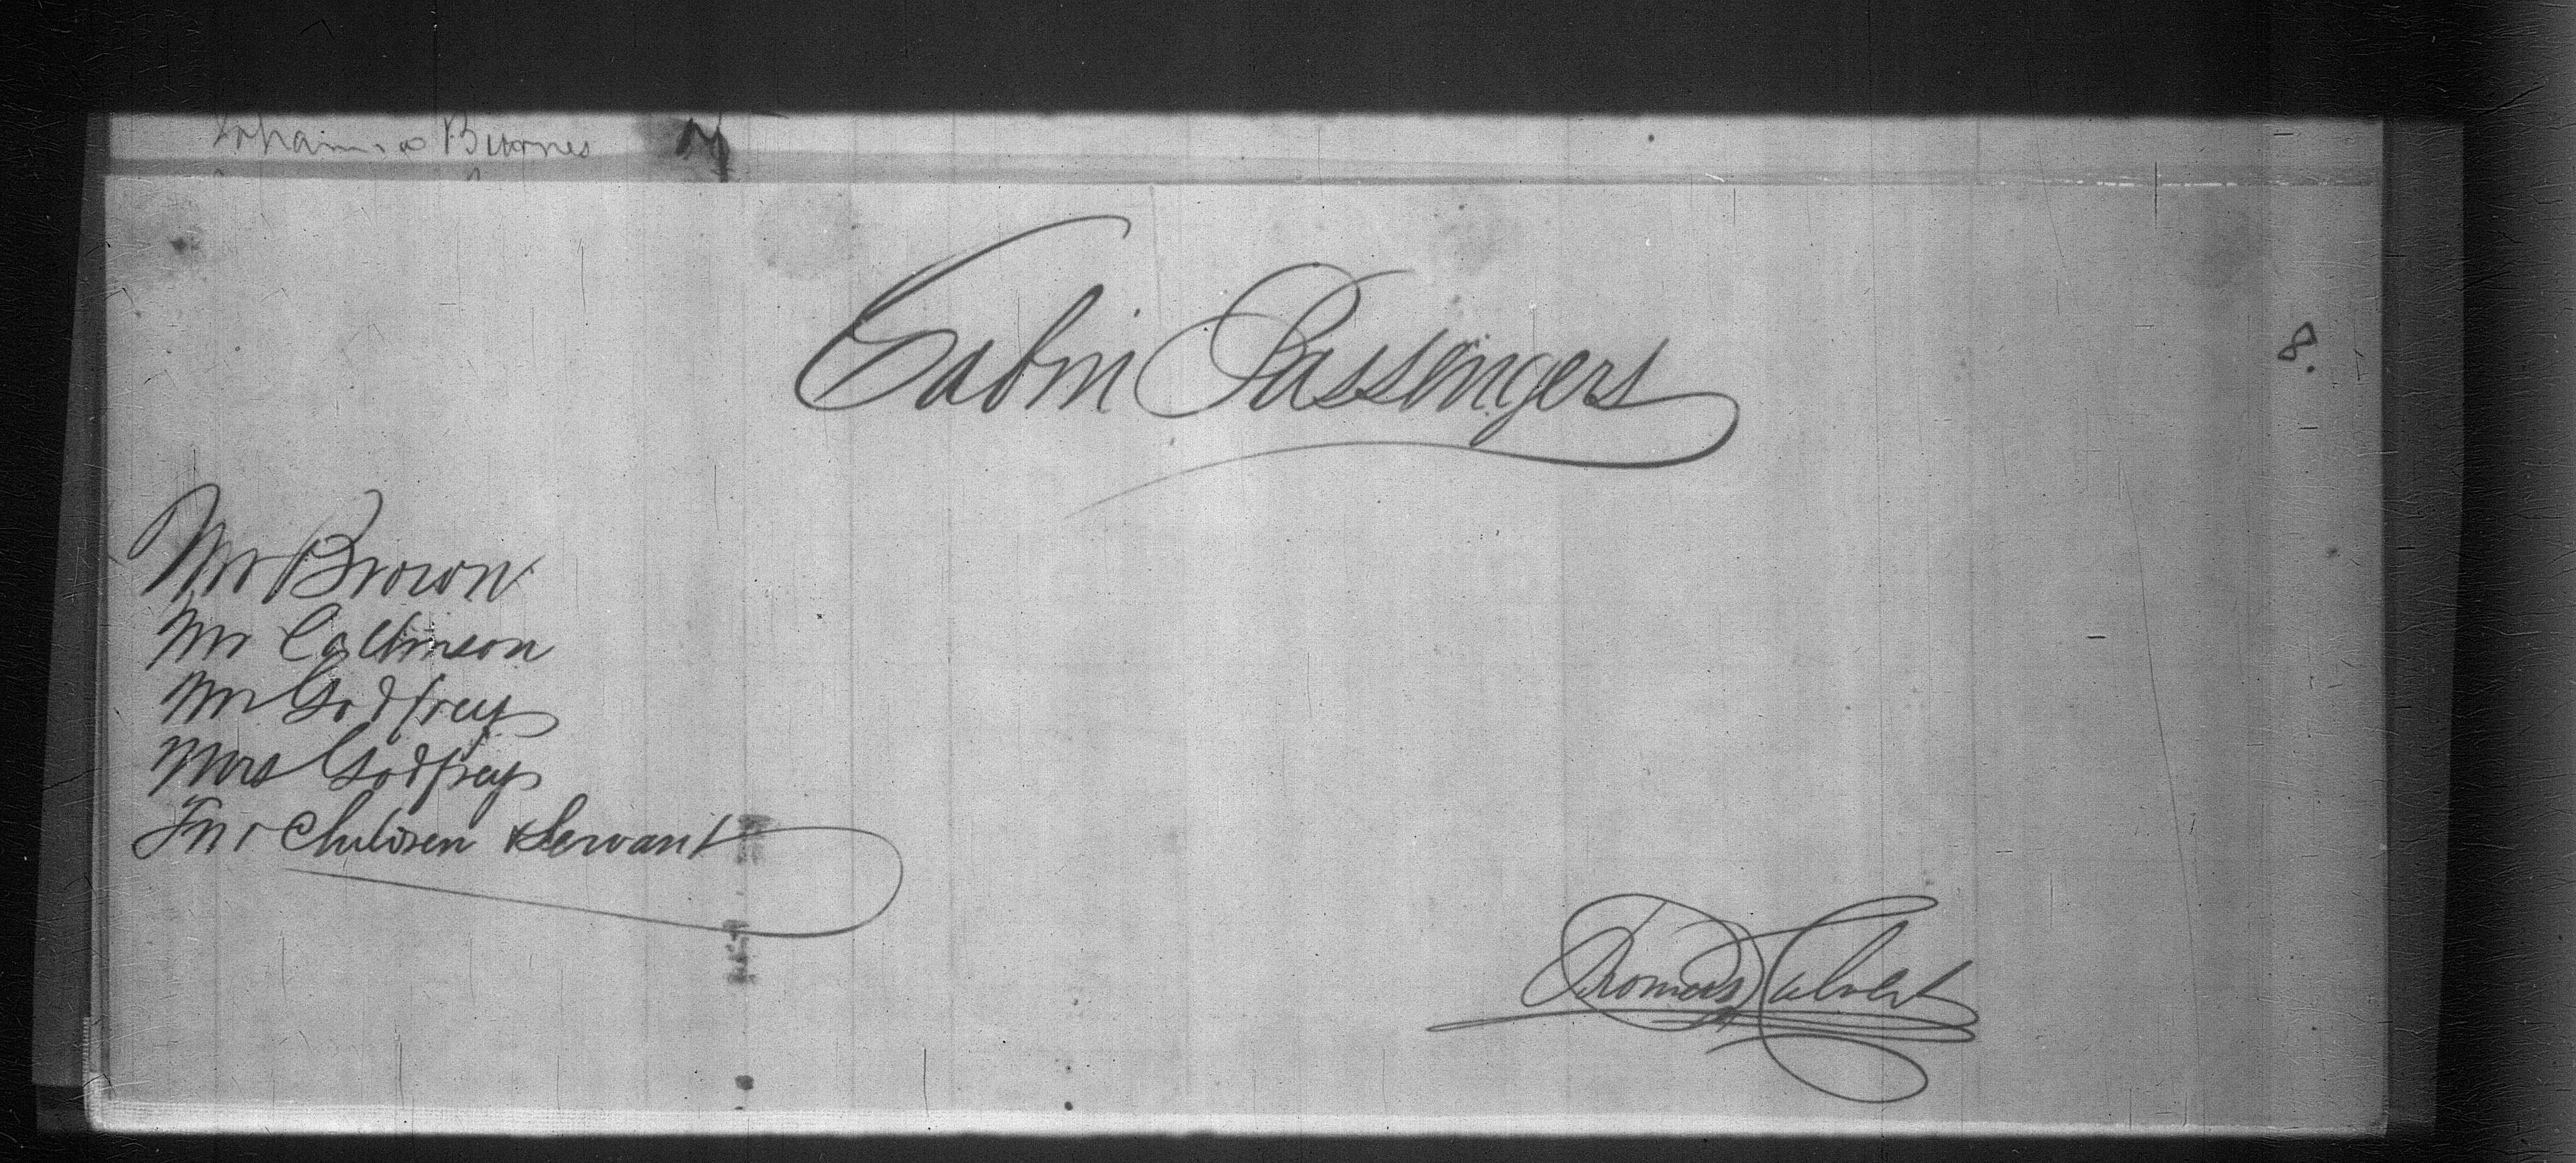 Johanna Burnes
Cabin Passengers
8.
Mr Brown
Mr Collinson
Mr Godfrey
Mrs Godfrey
Children & Servant
Thomas Calvert